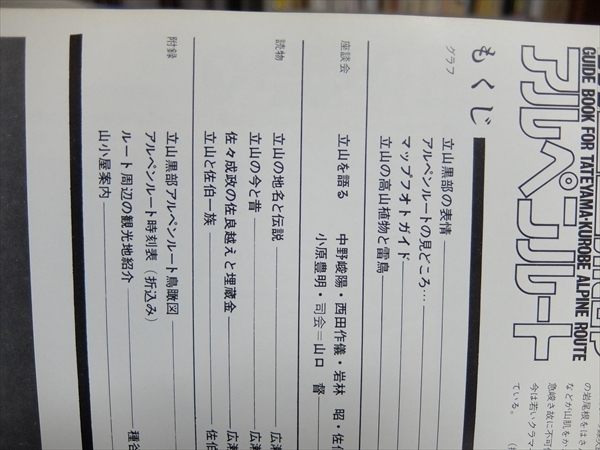 GUIDE BOOK FOR TATEYAMA·KUROBE ALPINE ROUTE
アルペンルート
の岩尾根をはさん
などが山肌をか
急峻さ故に不可
今は若いクラマ
ている。
もくじ
グラフ
立山黒部の表情
アルペンルートの見どころ…
マップフオトガイド
立山の高山植物と雷鳥
座談会
立山を語る　中野峻陽・西田作儀・岩林　昭・佐伯
小原豊明・司会=山口　督
読物
立山の地名と伝説 広瀬
立山の今と昔 広瀬
佐々成政の佐良越えと埋蔵金 広瀬
立山と佐伯一族 佐伯
附録
立山黒部アルペンルート鳥瞰図
アルペンルート時刻表（折込み）
ルート周辺の観光地紹介 種谷
山小屋案内